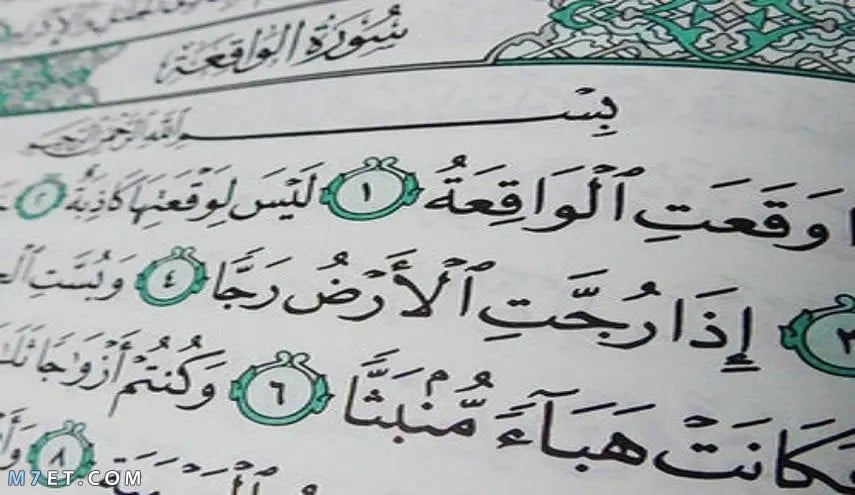 سُورَةُ الوَاقِعَة
بِسْمِ اللَّهِ الرَّحْمَٰنِ الرَّحِيمِ
وَقَعَتِ ٱلْوَاقِعَةُ ١ لَيْسَ لِوَقْعَتِهَا كَاذِبَةٌ ٢
٣ إِذَا رُجَّتِ ٱلْأَرْضُ رَجًّا ٤ وَبُسَّتِ
فَكَانَتْ هَبَآءً مُّنۢبَثًّا ٦ وَكُنتُمْ أَزْوَٰجًا
٨
M7ET.COM